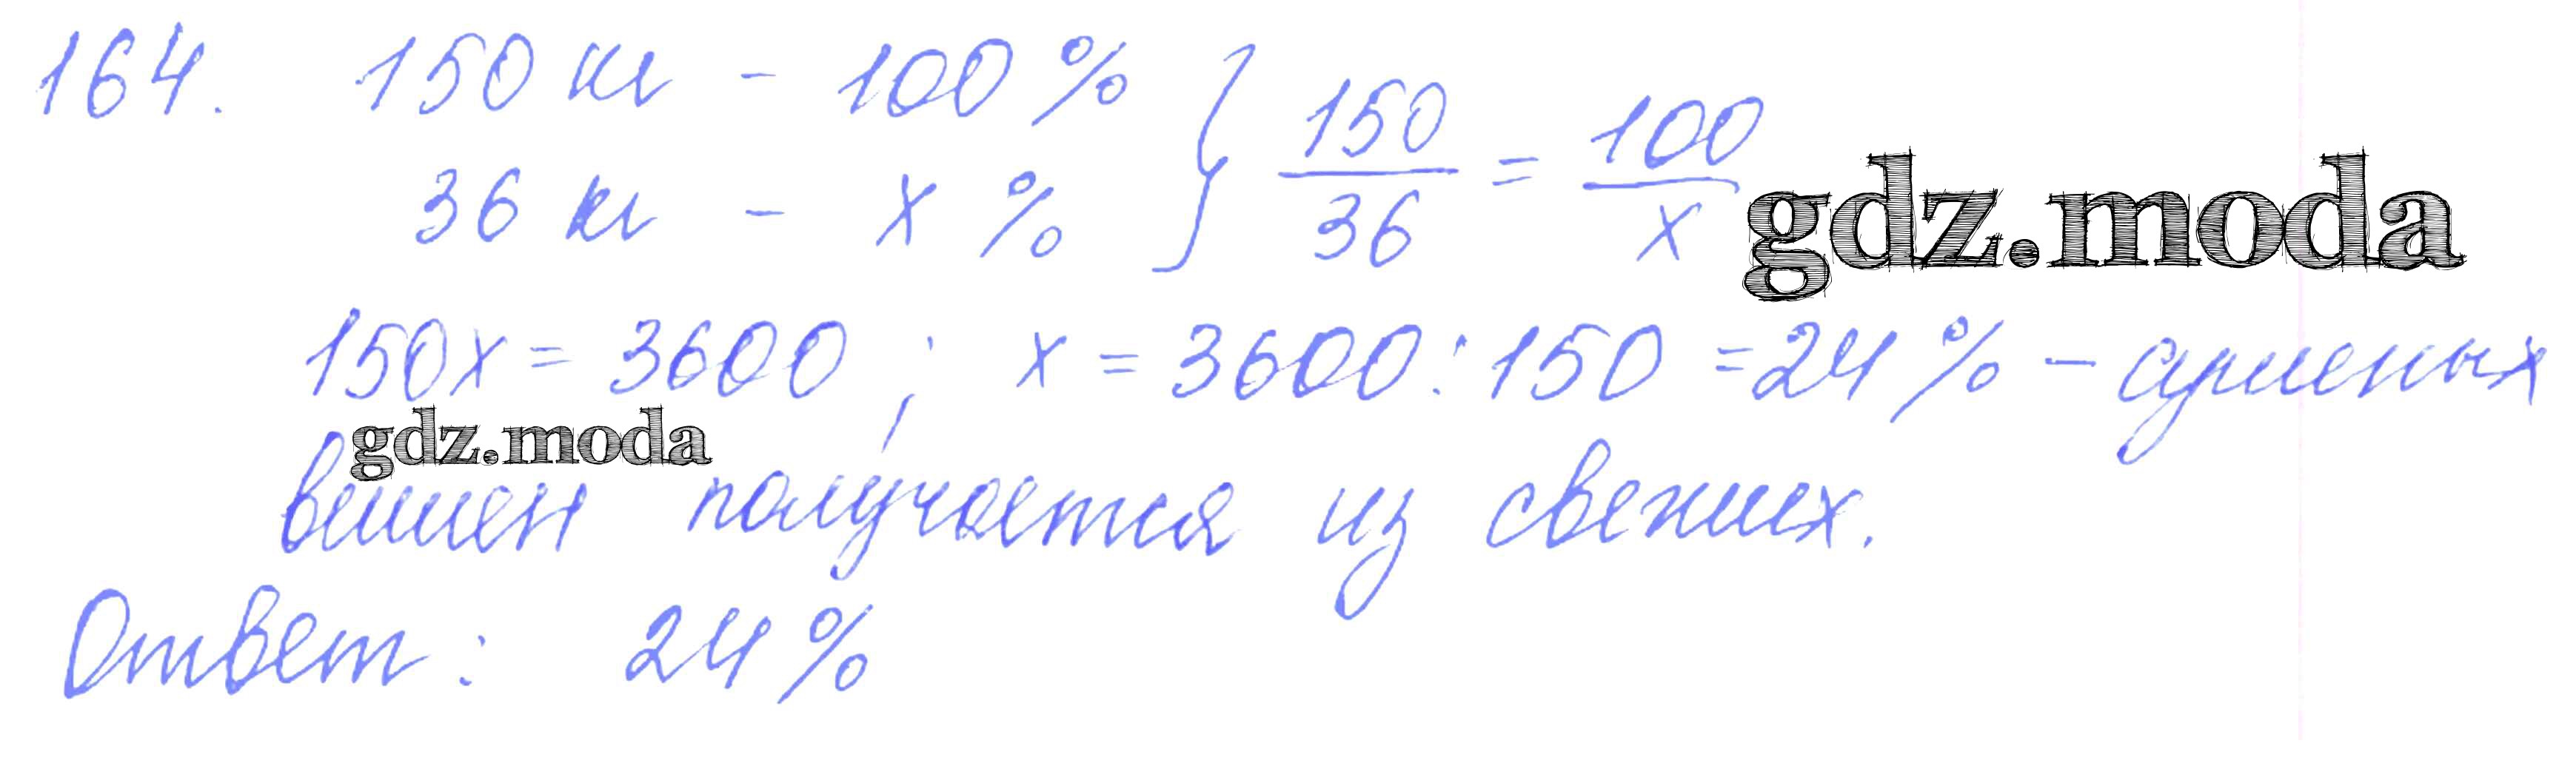 164. 150 кг - 100 % } 150/36 = 100/x
36 кг - x %
gdz.moda
150x = 3600 ; x = 3600 : 150 = 24 % - сушеных
gdz.moda
вишен получается из свежих.
Ответ: 24 %